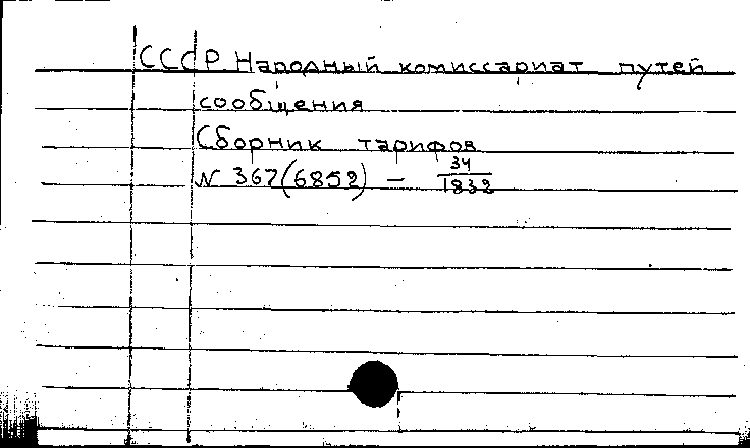 СССР Народный комиссариат путей
сообщения
Сборник тарифов
N 367(6852) - 34/1832